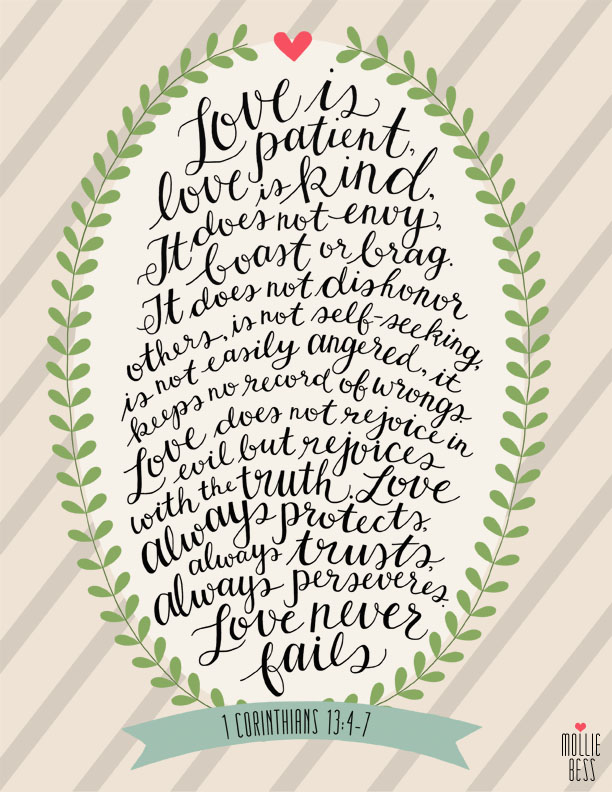 Love is
patient,
love is kind,
It does not envy,
boast or brag.
It does not dishonor
others, is not self-seeking,
is not easily angered, it
keeps no record of wrongs.
Love does not rejoice in
evil but rejoices
with the truth. Love
always protects,
always trusts,
always perseveres.
Love never
fails
1 CORINTHIANS 13:4-7
MOLLIE
BESS